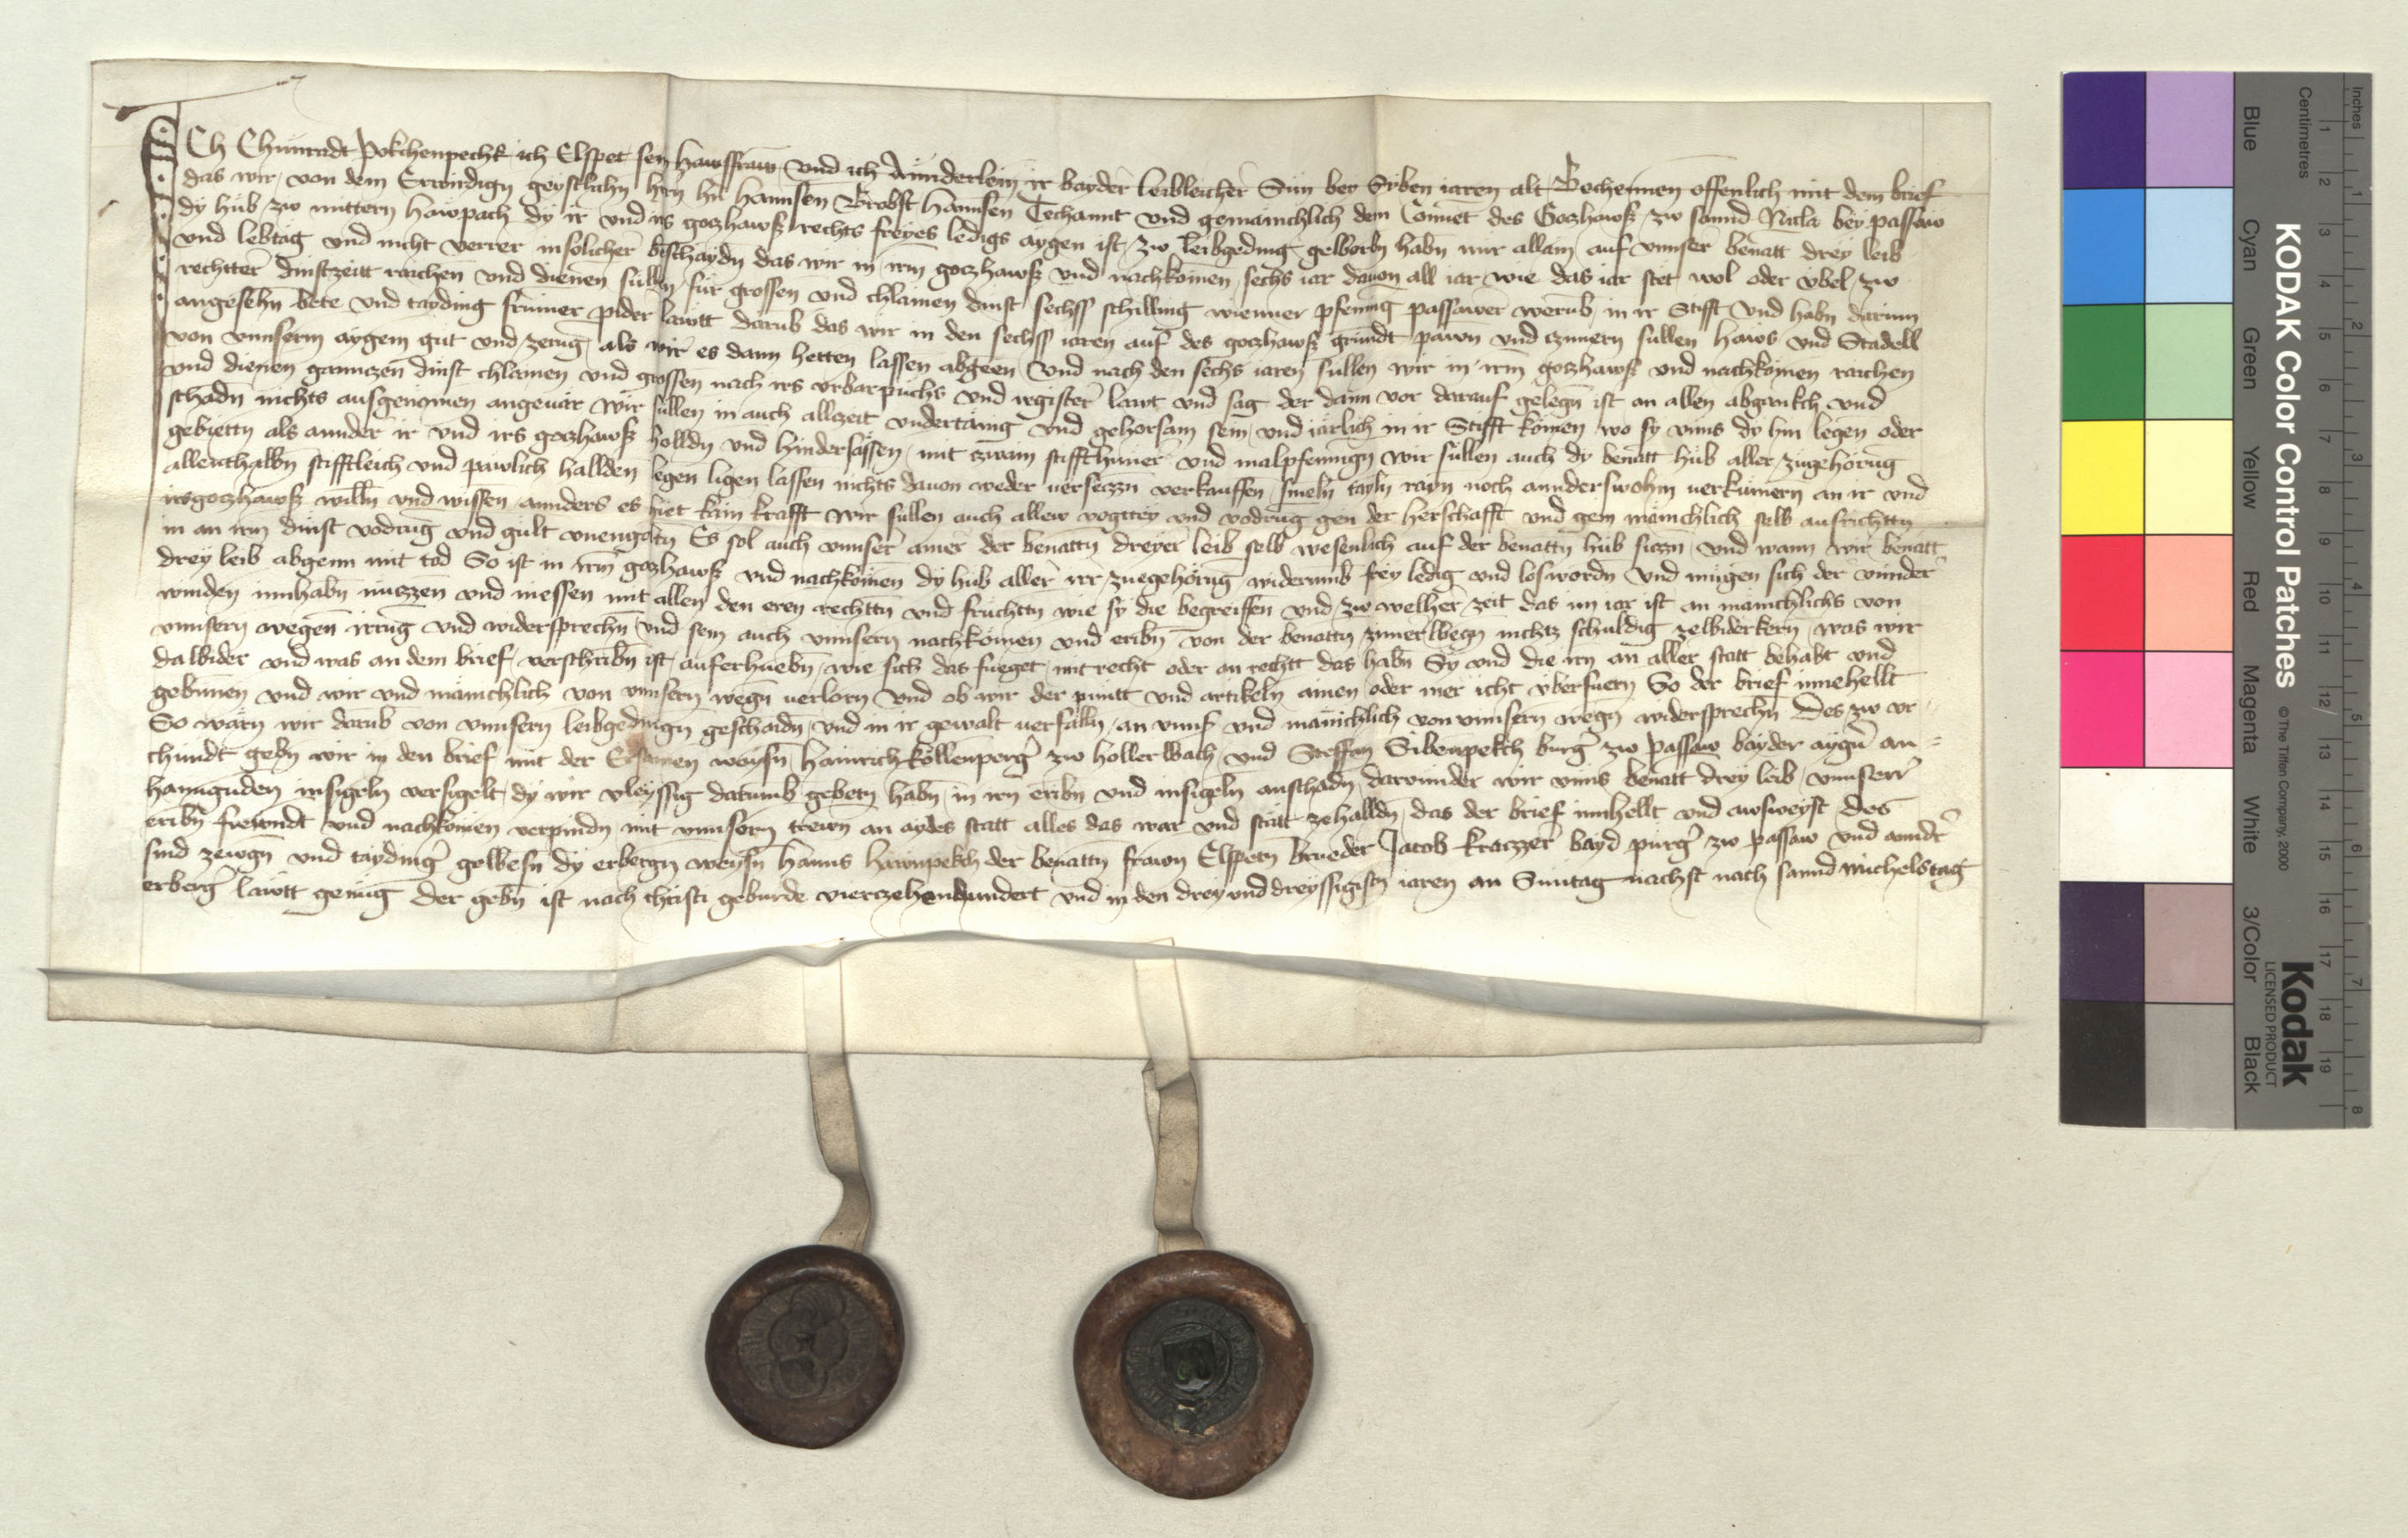 Ich Chunradt Pokchenpechk ich Elspet sein hawsfraw und ich Annderlein ir bayder leibleicher Sün bey Syben iaren alt Bechennen offenlich mit dem brief
das wir von dem Erwirdign geystlichn hrn hn hannsen Brobst hannsen Techannt und gemainchlich dem Convet des Gozhawß zw sannd Nicla bey passaw
dy hub zw mittern hawpach dy ir und irs gozhawß rechts freyes ledigs aygen ist zw leibgeding geworbn habn nur allain auf unnser benatt drey leib
und lebtag und nicht verrer in solicher beschaydn das wir in irm gozhawß und nachkomen sechs iar davon all iar wie das iar stet wol oder ubel zw
rechtter dinstzeitt raichen und dienen sullen fur grossen und chlainen dinst sechss schilling wienner pfening passawer werub in ir Stifft und habn darinn
angesehn bete und tayding frumer pider lawtt darub das wir in den sechss iaren auf des gozhawß grundt pawn und czimern sullen haws und Stadell
von unnserm aygem gut und zerug als wir es dann hetten lassen abgeen und nach den sechs iaren sullen wir in irm gozhawß und nachkomen raichen
und dienen gannczen dinst chlainen und grossen nach irs urbarpuchs und register lawt und sag der dann vor darauf gelegn ist an allen abgankch und
schadn nichts ausgenomen angevar wir sullen in auch allzeit undertanig und gehorsam sein und iarlich in ir Stifft komen wo sy unns dy hin legen oder
gebietn als annder ir und irs gozhawß holldn und hindersassen mit zwain stiffthuner und malpfennign wir sullen auch dy benatt hub aller zugehorug
allenthalbn stifftleich und pawlich hallden legen ligen lassen nichts davon weder verseczn verkauffen smeln tayln rayn noch annderswohin verkumern an ir und
irs gozhawß willn und wissen annders es hiet kain krafft wir sullen auch allew vogttey und vodrug gen der herschafft und gem mainchlich selb ausrichttn
in an irm dinst vodrug und gult unengoltn Es sol auch unnser ainer der benattn dreyer leib selb wesenlich auf der benattn hub siczn und wann wir benatt
drey leib abgenn mit tod So ist in irm gozhawß und nachkomen dy hub aller irr zuegehorug widerumb frey ledig und loswordn und mugen sich der unnder
winden innhabn nuczzen und niessen mit allen den eren rechttn und fruchttn wie sy die begreiffen und zw welher zeit das im iar ist an mainchlichs von
unnsern wegen irrug und widersprechn und sein auch unnsern nachkomen und eribn von der benattn wegn nichtz schuldig zewiderkern was wir
da wider und was an dem brief verschribn ist auferhuebn wie sich das fueget mit recht oder an rechtt das habn Sy und die irn an aller statt behabt und
gebunnen und wir und mainchlich von unnsern wegn verlorn und ob wir der puntt und artikeln ainen oder mer icht uberfuern So der brief innehellt
So warn wir darub von unnsern leibgedingn geschaidn und in ir gewalt verfalln an unns und mainchlich von unnsern wegn widersprechn Des zw ur
chundt gebn wir in den brief mit der Ersamen weysn hainrich köllenperg zw hollerwach und Steffan Sibenpekch burg zw passaw bayder aygn an
hanngunden insigeln versigelt dy wir vleyssig darumb gebetn habn in irn eribn und insigeln anschadn darunnder wir unns benatt drey leib unnserr
eribn frewndt und nachkomen verpindn mit unnsern trewn an aydes statt alles das war und statt zehalldn das der brief innhellt und awsweyst Des
sind zewgn und taydingr gewesn dy erbergn weysn hanns hawnpekch der benattn frawn Elspetn brueder Jacob kraczzer bayd purg zw passaw und anndr
erberg lawtt genug Der gebn ist nach christi geburde vierczehenhundert und in den drey und dreyssigistn iaren an Suntag nachst nach sannd michelstag
KODAK Color Control Patches © The Tiffen Company, 2000
Kodak
LICENSED PRODUCT
Inches
Centimetres
Blue Cyan Green Yellow Red Magenta White 3/Color Black
1 2 3 4 5 6 7 8 9 10 11 12 13 14 15 16 17 18 19
1 2 3 4 5 6 7 8